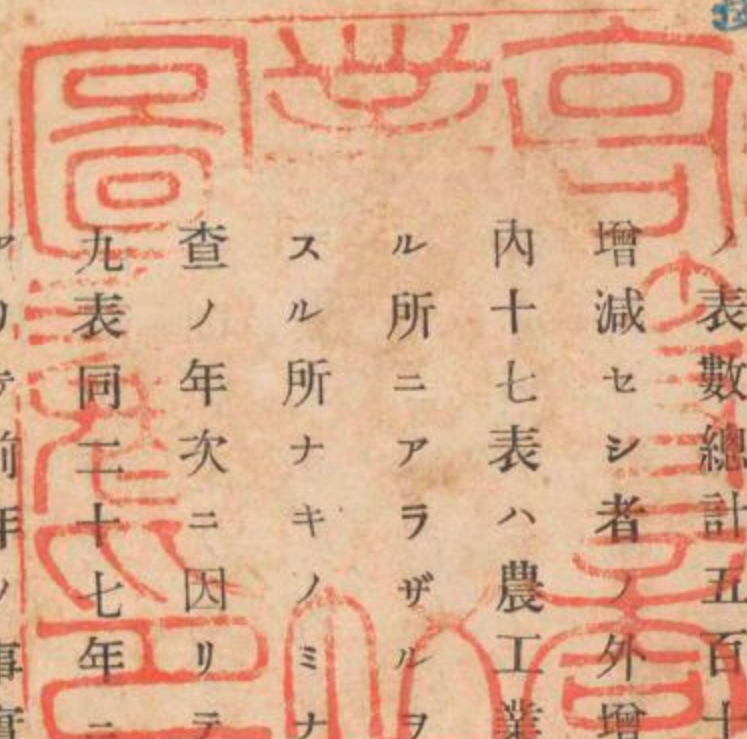 ノ表數總計五百十
增減セシ者ノ外增
內十七表ハ農工業
ル所ニアラザルヲ
スル所ナキノミナ
查ノ年次ニ因リテ
九表同二十七年ニ
アリテ前年ノ事實